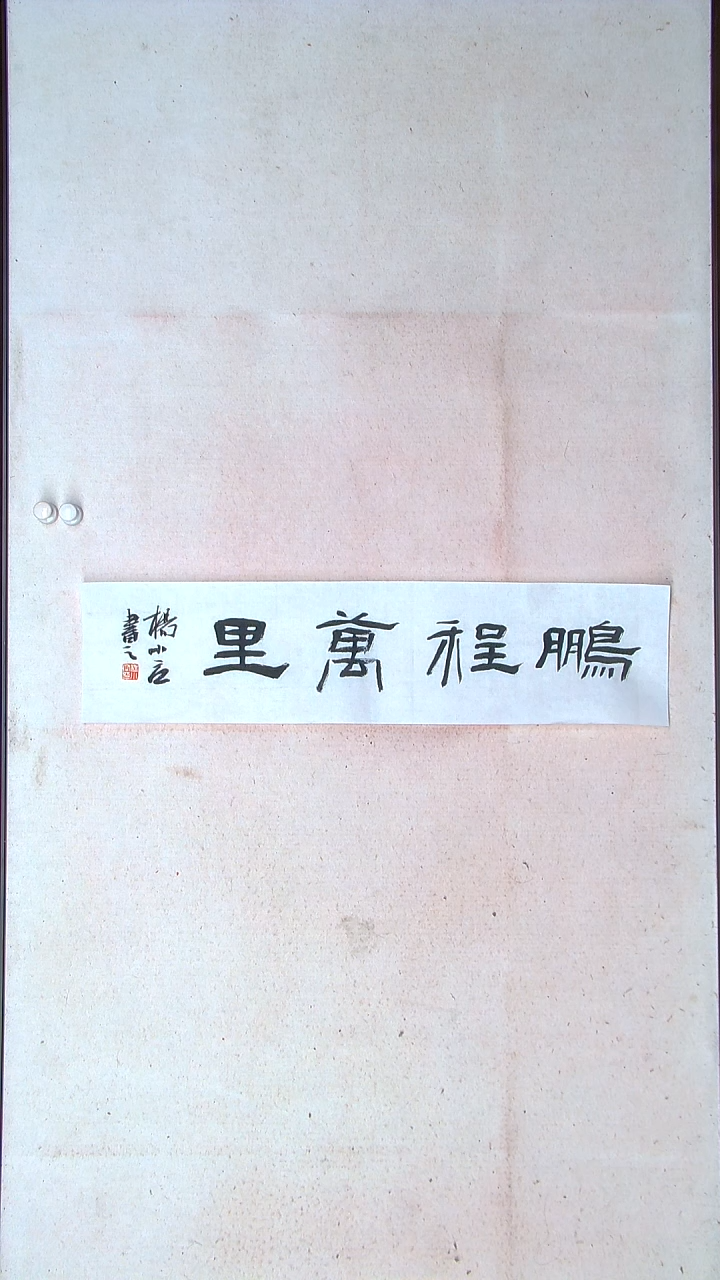 鵬程萬里
楊小
書之